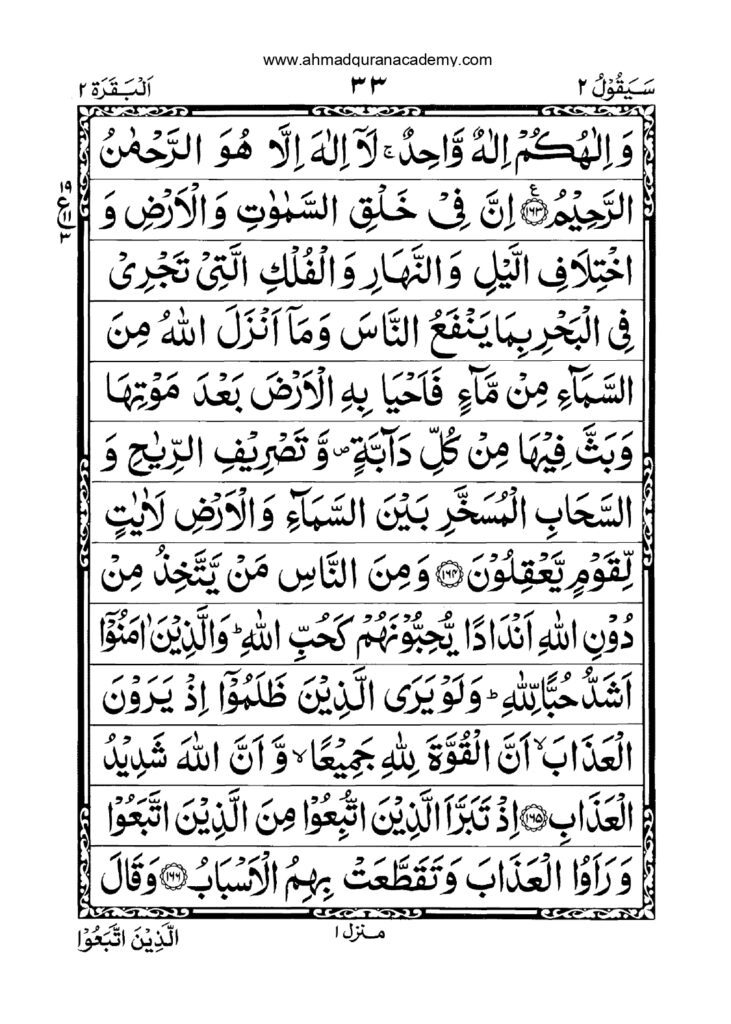 www.ahmadquranacademy.com
سَيَقُوْلُ ٢
٣٣
اَلْبَقَرَة ٢
وَ اِلٰهُكُمْ اِلٰهٌ وَّاحِدٌ ۚ لَاۤ اِلٰهَ اِلَّا هُوَ الرَّحْمٰنُ
الرَّحِيْمُ ﴿۱۶۳﴾ اِنَّ فِيْ خَلْقِ السَّمٰوٰتِ وَالْاَرْضِ وَ
١٩
ع
١١
٣
اخْتِلَافِ الَّيْلِ وَالنَّهَارِ وَالْفُلْكِ الَّتِيْ تَجْرِيْ
فِي الْبَحْرِ بِمَا يَنْفَعُ النَّاسَ وَمَاۤ اَنْزَلَ اللّٰهُ مِنَ
السَّمَآءِ مِنْ مَّآءٍ فَاَحْيَا بِهِ الْاَرْضَ بَعْدَ مَوْتِهَا
وَبَثَّ فِيْهَا مِنْ كُلِّ دَآبَّةٍ ۪ وَّ تَصْرِيْفِ الرِّيٰحِ وَ
السَّحَابِ الْمُسَخَّرِ بَيْنَ السَّمَآءِ وَالْاَرْضِ لَاٰيٰتٍ
لِّقَوْمٍ يَّعْقِلُوْنَ ﴿۱۶۴﴾ وَمِنَ النَّاسِ مَنْ يَّتَّخِذُ مِنْ
دُوْنِ اللّٰهِ اَنْدَادًا يُّحِبُّوْنَهُمْ كَحُبِّ اللّٰهِ ؕ وَالَّذِيْنَ اٰمَنُوْۤا
اَشَدُّ حُبًّا لِّلّٰهِ ؕ وَلَوْ يَرَى الَّذِيْنَ ظَلَمُوْۤا اِذْ يَرَوْنَ
الْعَذَابَ ۙ اَنَّ الْقُوَّةَ لِلّٰهِ جَمِيْعًا ۙ وَّ اَنَّ اللّٰهَ شَدِيْدُ
الْعَذَابِ ﴿۱۶۵﴾ اِذْ تَبَرَّاَ الَّذِيْنَ اتُّبِعُوْا مِنَ الَّذِيْنَ اتَّبَعُوْا
وَ رَاَوُا الْعَذَابَ وَتَقَطَّعَتْ بِهِمُ الْاَسْبَابُ ﴿۱۶۶﴾ وَقَالَ
منزل ١
الَّذِيْنَ اتَّبَعُوْا